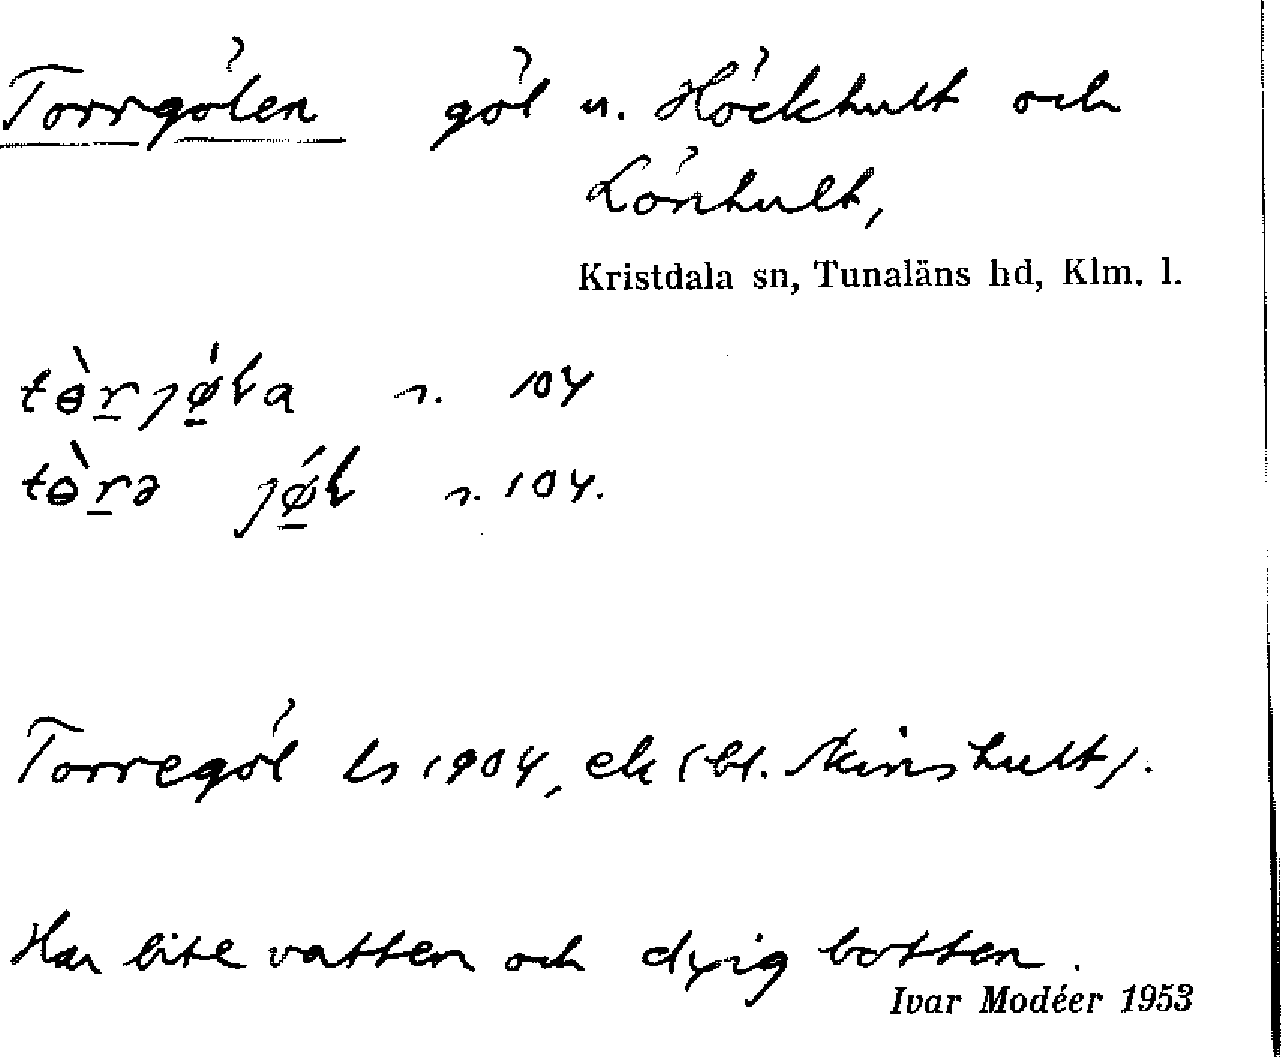 Torrgölen göl u. Höckhult och
Lönhult,
Kristdala sn, Tunaläns hd, Klm. l.
tɵ̀r̲ɟǿ̲ɽa s. 104
tɵ̀r̲ə ɟǿ̲ɽ s. 104.
Torregöl ls 1904, ek (bl. Skinshult).
Har lite vatten och dyig botten.
Ivar Modéer 1953